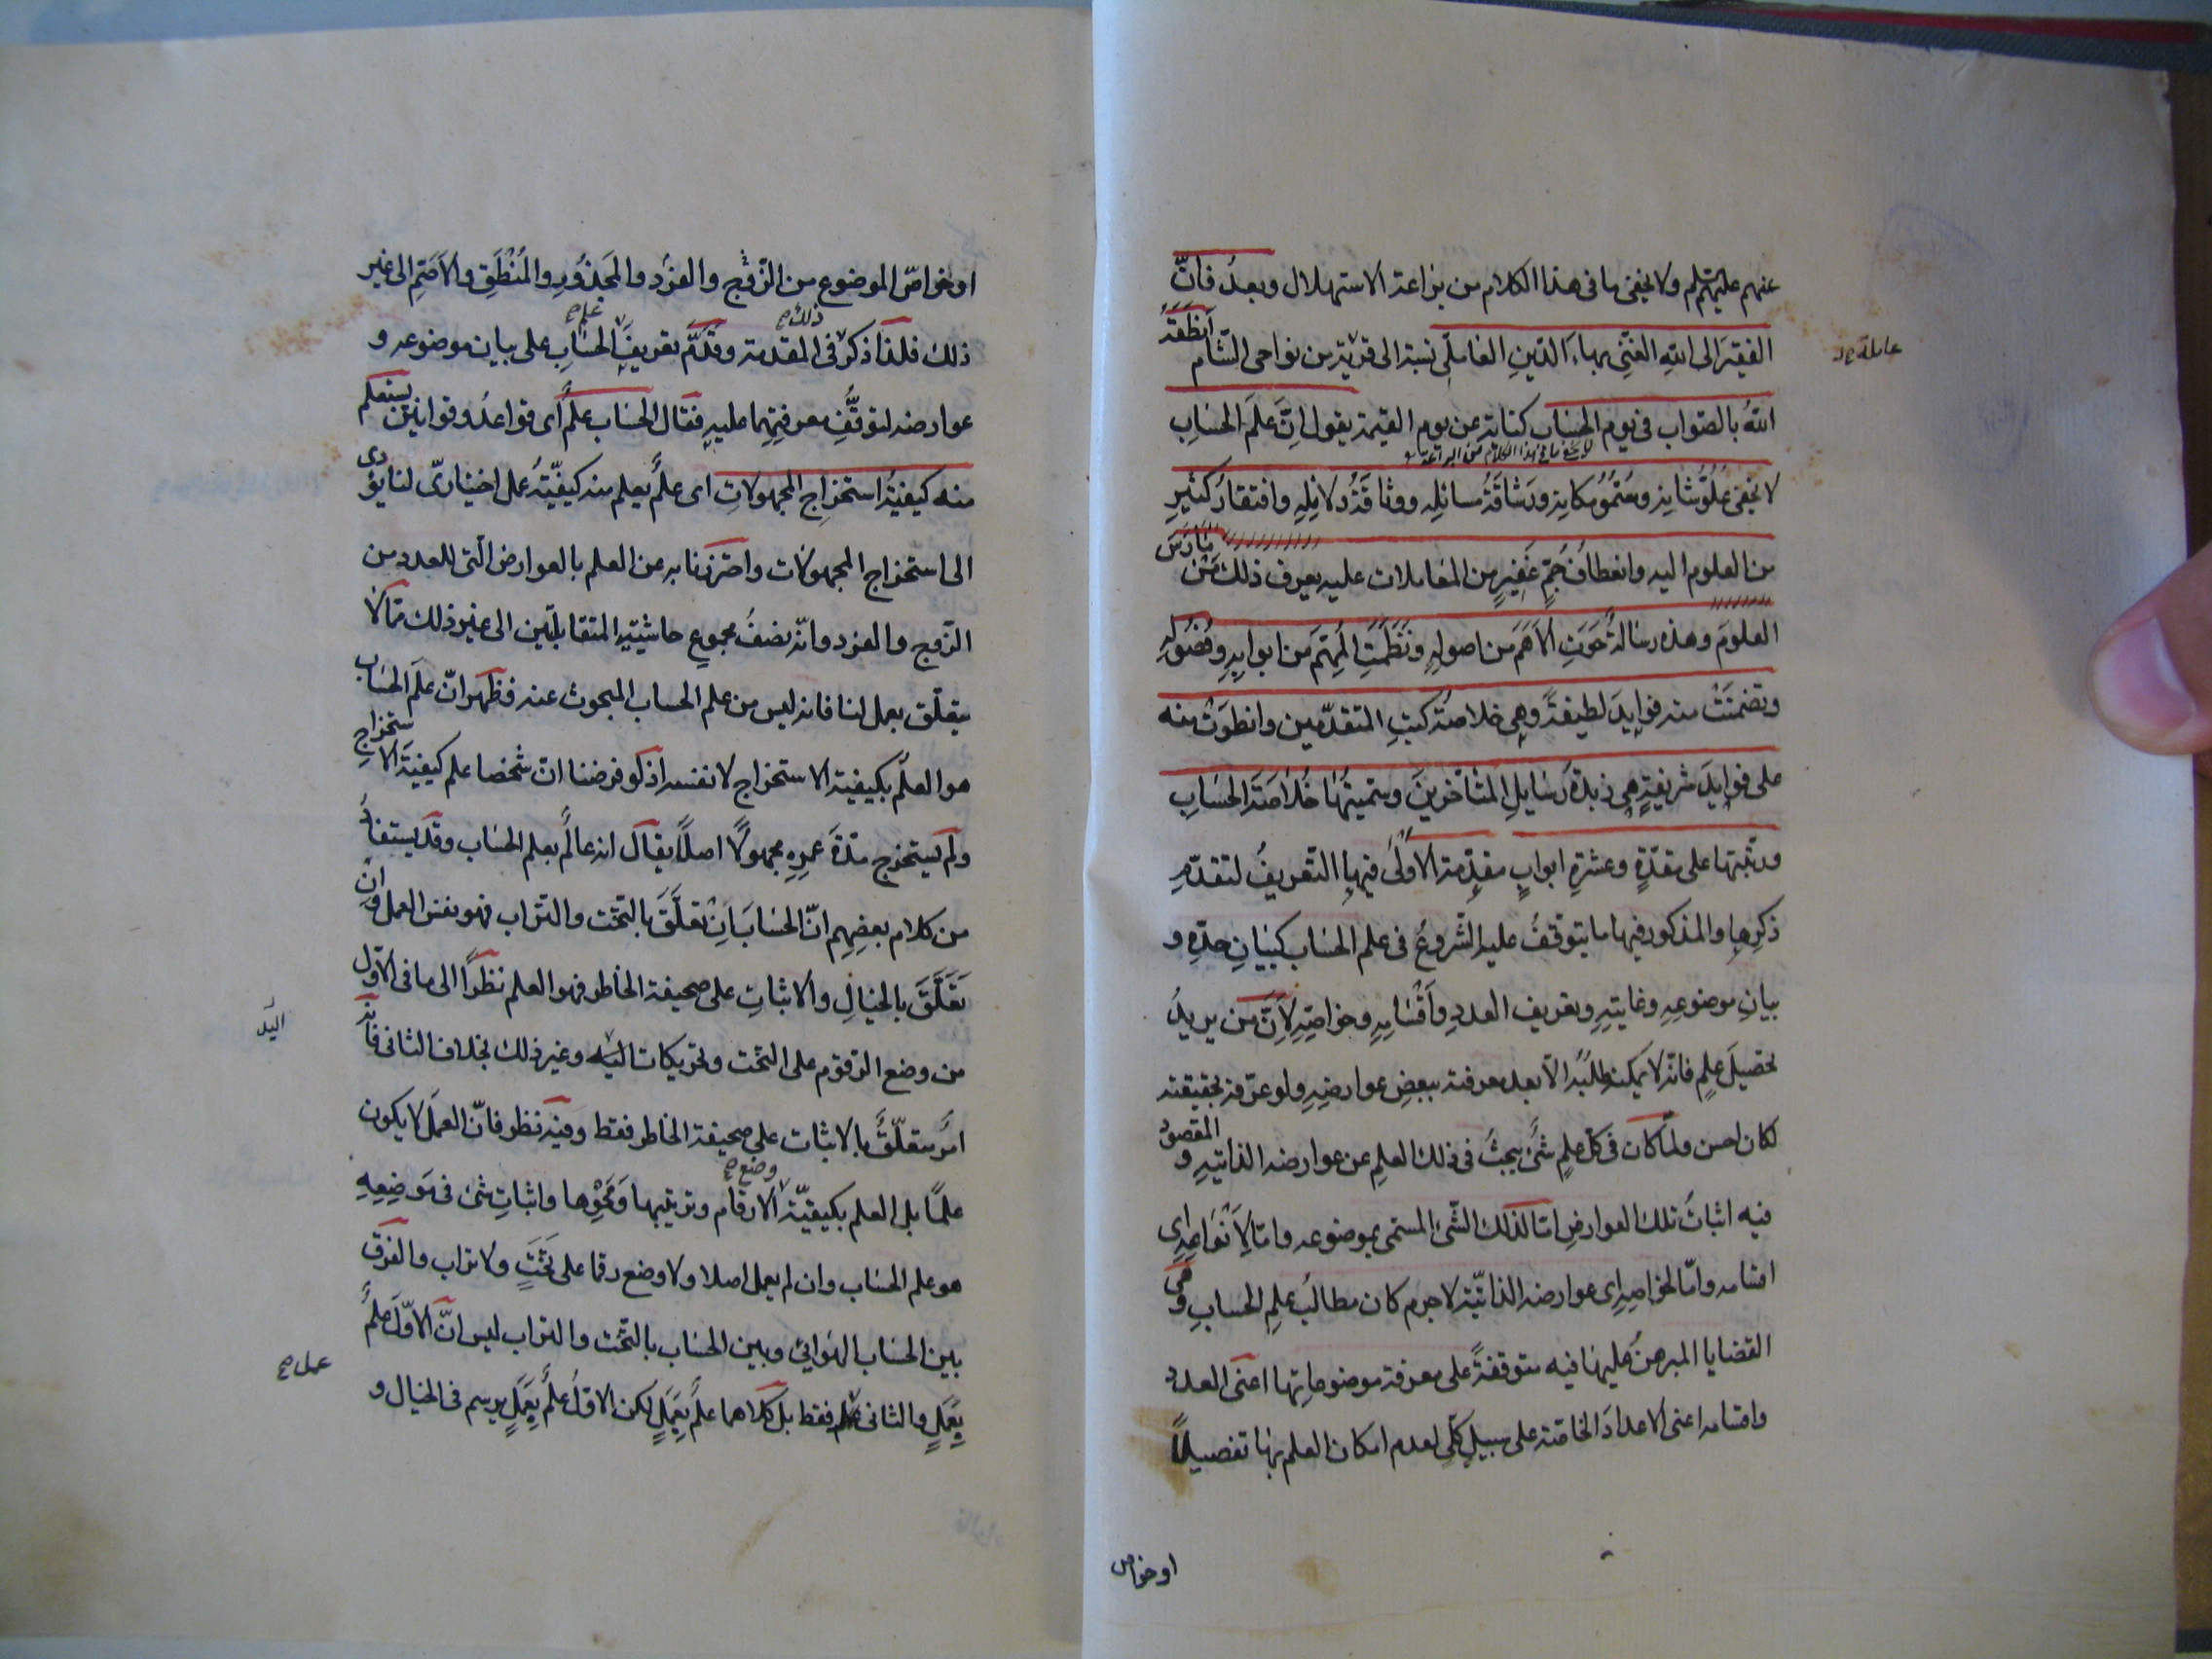 عنهم عليهم ولا يخفى ما فى هذا الكلام من براعة الاستهلال وبعدُ فانّ
الفقيرَ الى اللهِ الغنِّى بهاءَ الدّينِ العاملِّى نسبة الى قرية من نواحى الشّام اَنطَقَهُ
عاملة
اللهُ بالصّواب فى يوم الحِسَاب كناية عن يوم القيٰمة يقول اِنّ عِلمَ الحسَابِ
لا يخفى ما فى هذا الكلام من البراعة
لا يخفى عُلُوُّ شانِه وسُمُوُّ مكانِه ورَشاقَةُ مسائلِهِ ووثاقَةُ دلائلِهِ وافتقارُ كثيرٍ
من العلوم اليه وانعطافُ جَمٍّ غفيرٍ من المعاملات عليه يعرف ذلك مَن مَارَسَ
العلومَ وهذه رسالةٌ حَوَتِ الاَهَمَّ من اصولِهِ ونَظَمَتِ المُهِمَّ من ابوابِهِ وفُصُولِهِ
وتضمنَتْ منه فوايدَ لطيفةً وهى خلاصةُ كتبِ المتقدّمين وانطوَتْ منه
على فوايدَ شريفةٍ هى زبدةُ رسايلِ المتاخّرينَ وسمّيتُها خُلاصَةَ الحسَابِ
ورتّبتها على مقدّمةٍ وعشرةِ ابوابٍ مقدّمة الاَولىٰ فيها التّعريفُ لتقدّمِ
ذكرِها والمذكور فيها ما يتوقفُ عليه الشّروعُ فى علم الحسَاب كبَيَانِ حدّهِ و
بيانِ موضوعِهِ وغايتِهِ وتعريف العددِ واَقْسَامِهِ وخواصّهِ لاَِنَّ من يريدُ
تحصيلَ علمٍ فانّه لا يمكنه طلبُه الّا بعد معرفته ببعضِ عوارضِهِ ولو عرّفه بحقيقته
لكان احسن ولمّا كان فى كلّ علمٍ شئٌ يبحثُ فى ذلك العلمِ عن عوارضه الذاتيهِ و المقصود
فيه اثباتُ تلك العوارضِ امّا لذلك الشّئ المسمّى بموضوعه وامّا لِاَنْوَاعِهِ اى
اقسامه وامّا لخواصِهِ اى عوارضه الذاتيّة لا جرم كان مطالبُ علمِ الحسابِ وهى
القضايا المبرهنُ عليها فيه متوقفةً على معرفة موضوعاتِها اعنى العدد
واقسامه اعنى الاعدادَ الخاصّة على سبيلٍ كلّىٍ لعدم امكان العلم بها تفصيلًا
او خواص
او خواصّ الموضوع من الزّوج والفرد والمَجذُورِ والمُنْطَقِ والاَصَمِّ الى غير
ذلك فلذا ذكر فى المقدمة وقدّم تعريفَ الحسَابِ على بيان موضوعه و
ذلك ح
علم ح
عوارضه لتوقّفِ معرفتِهِما عليهِ فقال الحسَاب علمٌ اى قواعدُ وقوانين يستعلم
منه كيفيّةُ استخراجِ المجهولاتِ اى علمٌ يعلم منه كيفيّةُ عملٍ اختيارىٍّ لنا يؤدى
الى استخراج المجهولات واحترزنا به عن العلم بالعوارض الّتى للعدد من
الزّوج والفرد وانّه نصفُ مجموعِ حاشيتيهِ المتقابلتين الى غير ذلك ممّا لا
يتعلّق بعملٍ لنا فانه ليس من علم الحساب المبحوث عنه فظهر انّ علمَ الحسَاب
هو العلمُ بكيفية الاستخراج لا نفسه اذ لو فرضنا انّ شخصا علم كيفيّةَ الاستخراج
ولم يستخرج مدّةَ عمرِهِ مجهولًا اصلًا يقال انه عالمٌ بعلم الحسَاب وقد يستفادُ
من كلام بعضِهِم انّ الحسَابَ اِنْ تعلّقَ بالتّخت والتّراب فهو نفس العمل وان
تعلّقَ بالخيالِ والاثباتِ على صحيفة الخاطر فهو العلم نظرًا الى ما فى الاوّل
من وضع الرّقوم على التّخت وتحريكات اليد وغير ذلك بخلاف الثانى فانه
اليد
امرٌ متعلّقٌ بالاثبات على صحيفة الخاطر فقط وفيه نظر فانّ العملَ لا يكون
علمًا بل العلم بكيفيّة الارقام وترتيبها ومَحْوِها واثباتِ شئ فى مَوضِعِهِ
وضع ح
هو علم الحسَاب وان لم يعمل اصلا ولا وضع رقما على تَخْتٍ ولا تراب والفرق
بين الحسَاب الهوائى وبين الحسَاب بالتّخت والتراب ليس انّ الاوّلَ علمٌ
بِعَمَلٍ والثانى فقط بل كلاهما علمٌ بِعَمَلٍ لكن الاوّلُ علمٌ بِعَمَلٍ يرسم فى الخيال و
عمل ح